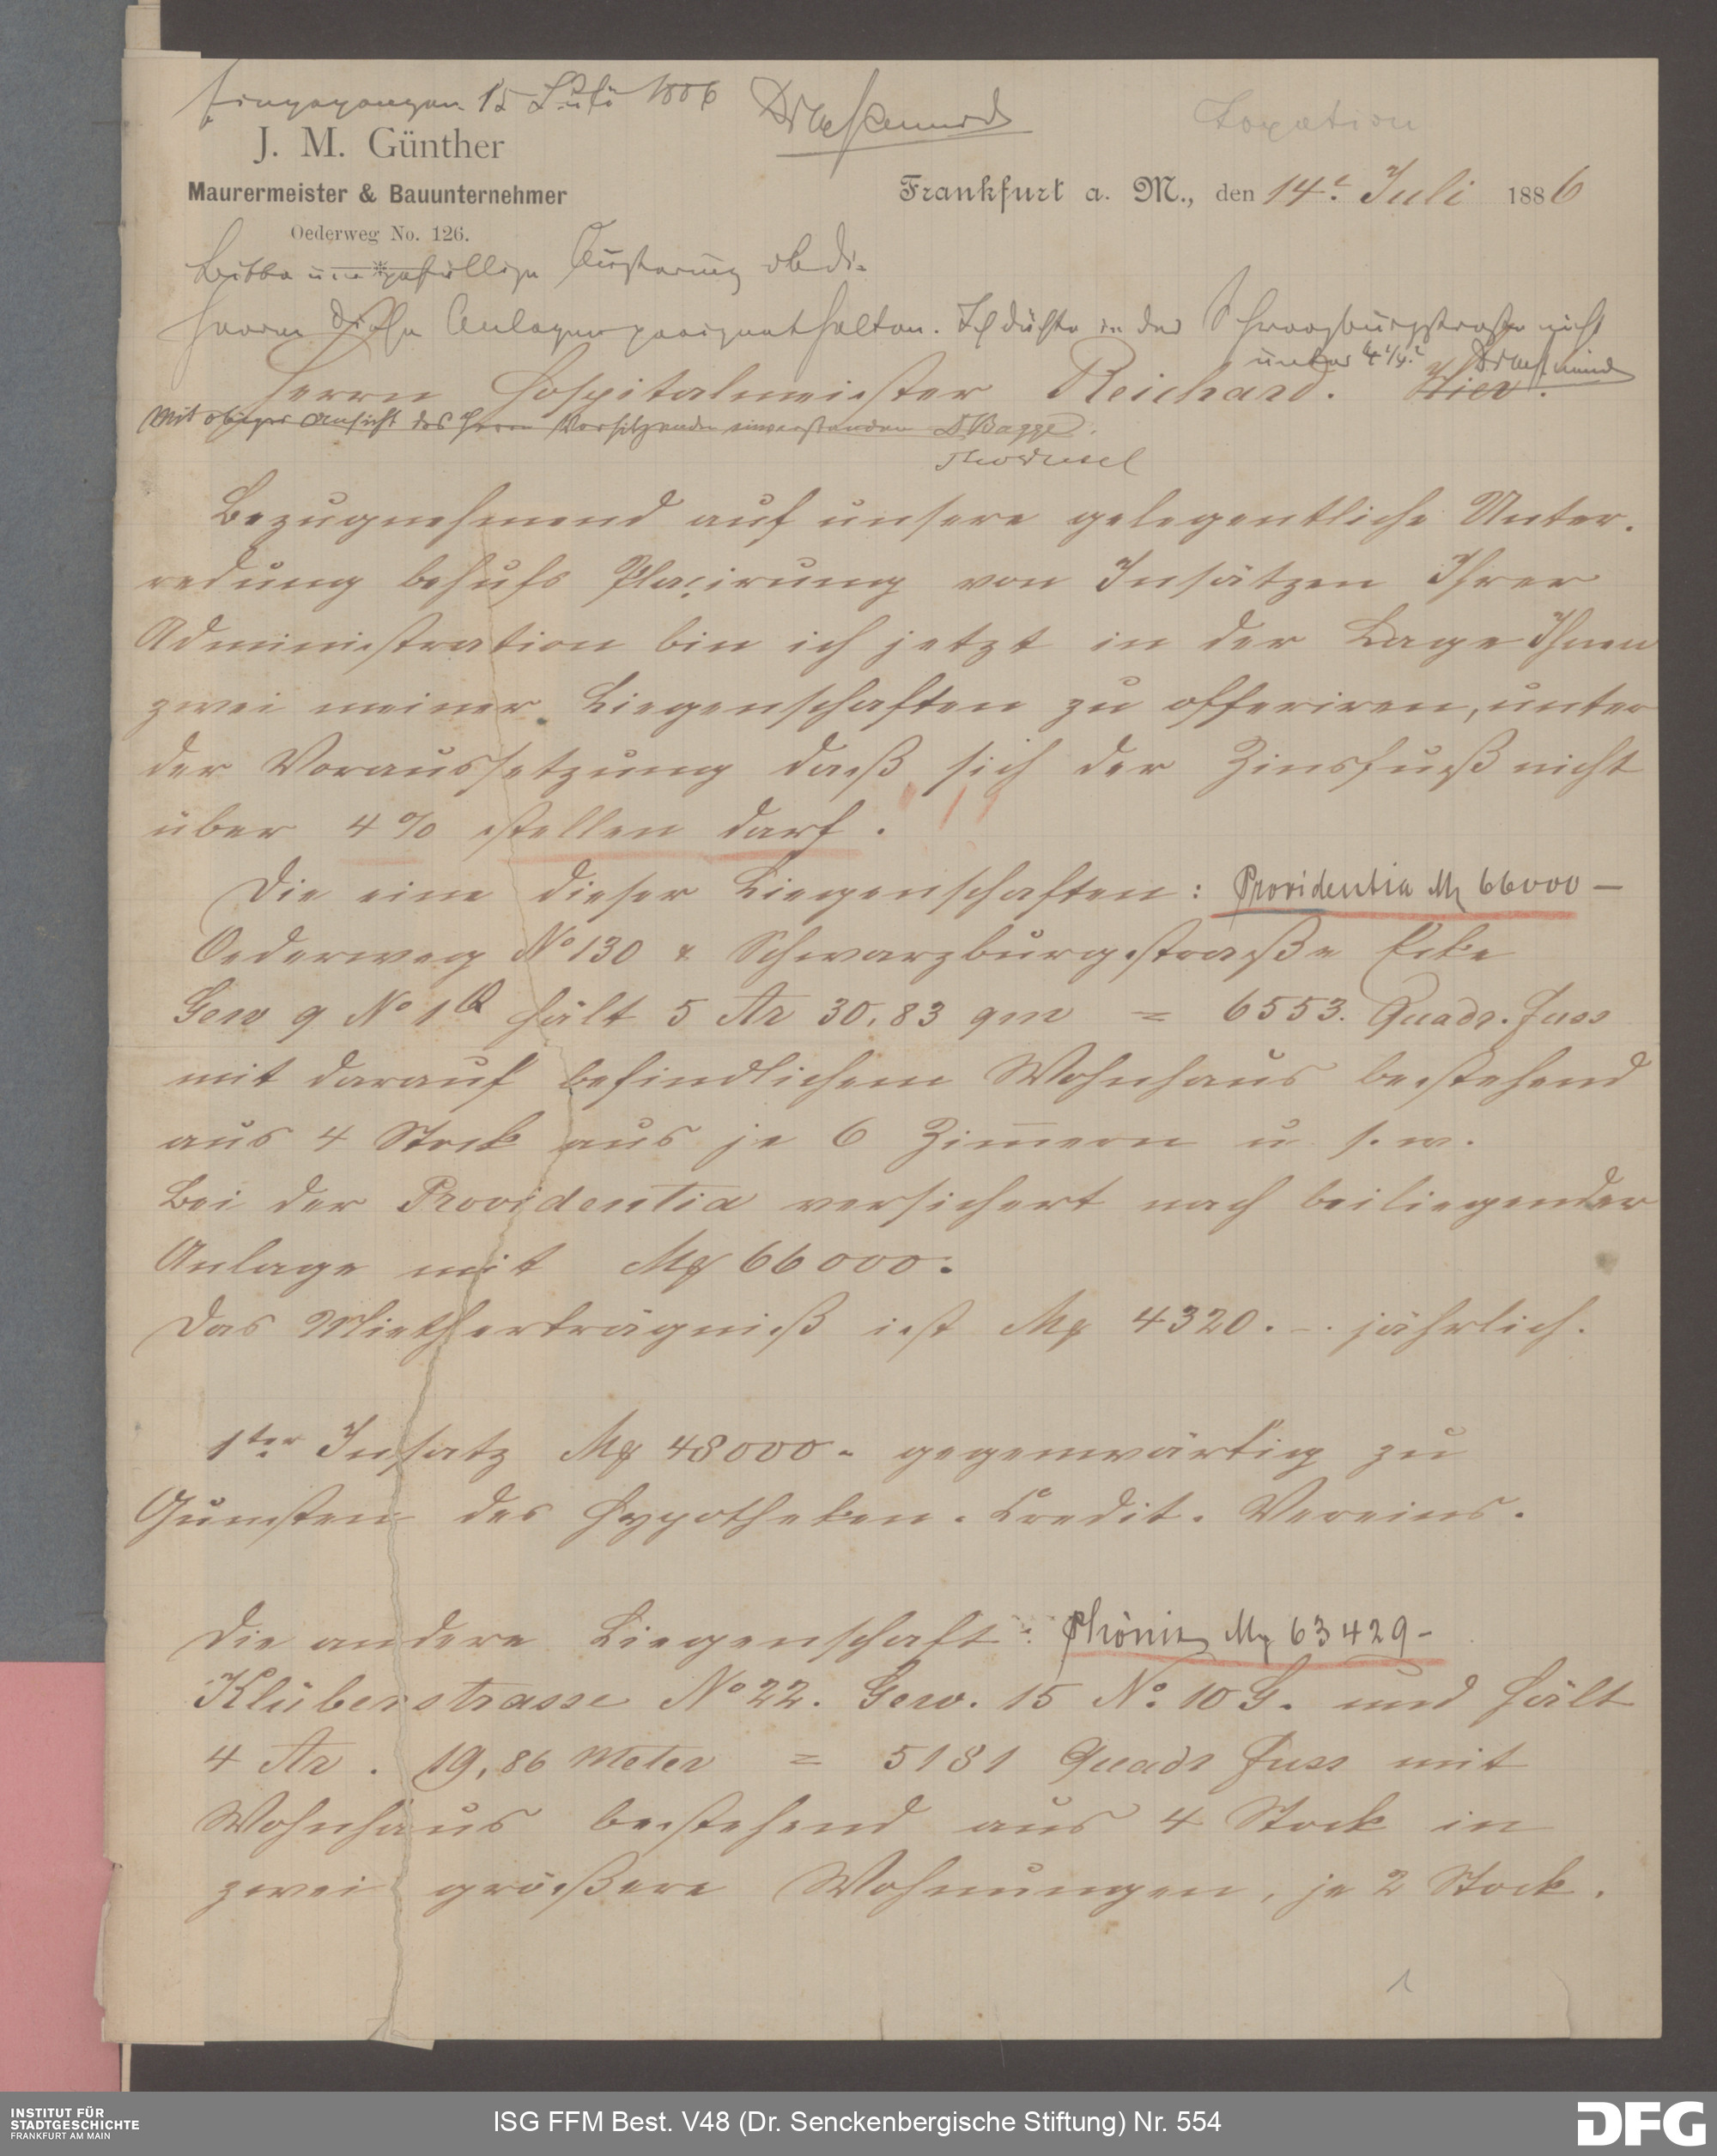 Eingegangen 15 Juli 1886
Taxation
J. M. Günther
Maurermeister & Bauunternehmer
Frankfurt a. M., den 14t. Juli 1886
Oederweg No. 126.
Bitte um gefällige Äußerung ob die
Herrn diese Anlagen geeignet halten. Ich dächte in der Schwarzburgstraße nicht
unter 4 1/4.
Herrn Hospitalmeister Reichard. Hier.
Mit obiger Ansicht des Herrn Vorsitzenden einverstanden D Bagge.
Bezugnehmend auf unsere gelegentliche Unter-
redung behufs Plaçirung von Insätzen Ihrer
Administration bin ich jetzt in der Lage Ihnen
zwei meiner Liegenschaften zu offeriren, unter
der Voraussetzung daß sich der Zinsfuß nicht
über 4% stellen darf.
Die eine dieser Liegenschaften: Providentia M 66000 —
Oederweg No 130 & Schwarzburgstraße Ecke
Gew 9 No 1 Q hält 5 Ar 30,83 qm = 6553. Quadr. Fuss
mit darauf befindlichem Wohnhaus bestehend
aus 4 Stock aus je 6 Zimmern u. s. w.
Bei der Providentia versichert nach beiliegender
Anlage mit M 66000.
Das Mietherträgniß ist M 4320. – . jährlich.
1ter Insatz M 48000 - gegenwärtig zu
Gunsten des Hypotheken-Credit-Vereins.
Die andere Liegenschaft: Phönix M 63429 -
Klüberstrasse No 22. Gew. 15 No. 10 G. und hält
4 Ar. 19,86 Meter = 5181 Quadr Fuss mit
Wohnhaus bestehend aus 4 Stock in
zwei größere Wohnungen, je 2 Stock.
1
INSTITUT FÜR
STADTGESCHICHTE
FRANKFURT AM MAIN
ISG FFM Best. V48 (Dr. Senckenbergische Stiftung) Nr. 554
DFG